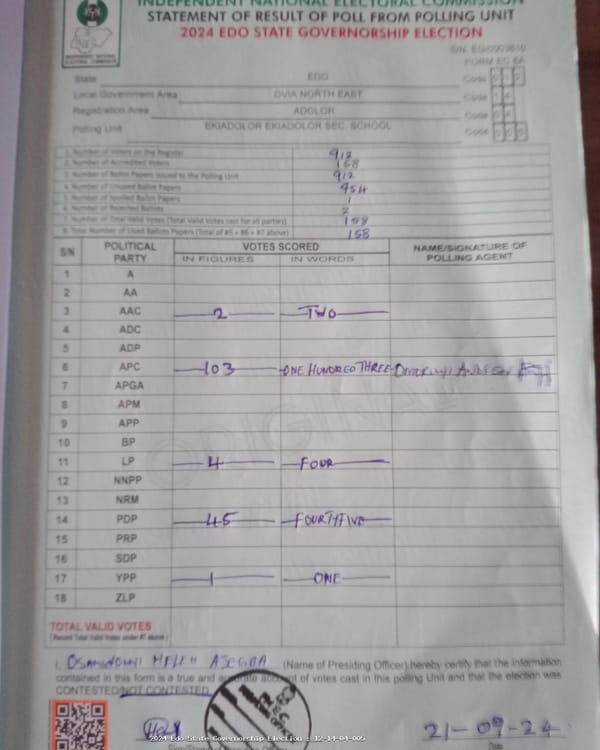 INDEPENDENT NATIONAL ELECTORAL COMMISSION
STATEMENT OF RESULT OF POLL FROM POLLING UNIT
2024 EDO STATE GOVERNORSHIP ELECTION
FORM EC 8A
State EDO Code
Local Government Area OVIA NORTH EAST Code
Registration Area ADOLOR Code
Polling Unit EKIADOLOR EKIADOLOR SEC. SCHOOL Code
1. Number of Voters on the Register 912
2. Number of Accredited Voters 158
3. Number of Ballot Papers Issued to the Polling Unit 912
4. Number of Unused Ballot Papers 954
5. Number of Spoiled Ballot Papers 1
6. Number of Rejected Ballots 2
7. Number of Total Valid Votes (Total Valid Votes cast for all parties) 158
8. Total Number of Used Ballots Papers (Total of #5 + #6 + #7 above) 158
S/N POLITICAL PARTY VOTES SCORED NAME/SIGNATURE OF POLLING AGENT
IN FIGURES IN WORDS
1 A
2 AA
3 AAC 2 TWO
4 ADC
5 ADP
6 APC 103 ONE HUNDRED THREE
7 APGA
8 APM
9 APP
10 BP
11 LP 4 FOUR
12 NNPP
13 NRM
14 PDP 45 FOURTYFIVE
15 PRP
16 SDP
17 YPP 1 ONE
18 ZLP
TOTAL VALID VOTES
I, (Name of Presiding Officer) hereby certify that the information
contained in this form is a true and accurate account of votes cast in this polling Unit and that the election was
CONTESTED/NOT CONTESTED.
21-09-24
2024 Edo State Governorship Election - 12-14-04-005
Date